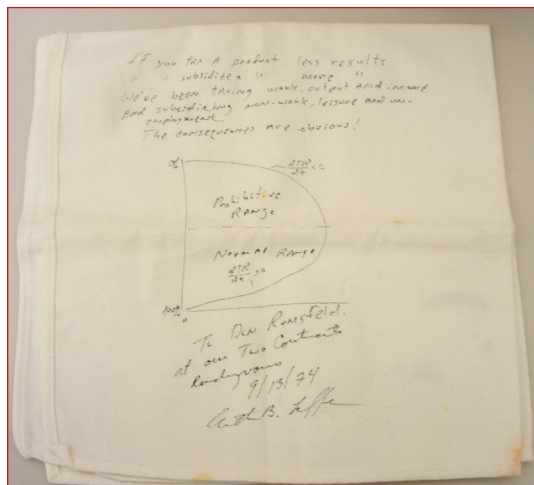 If you tax a product less results
" " subsidize a " more "
We've been taxing work, output and income
And subsidizing non-work, leisure and un-
employment.
The consequences are obvious!
dTR/dt < 0
Prohibitive
Range
Normal Range
dTR/dt > 0
100%
0
To Don Rumsfeld.
at our Two Continents
Rendezvous
9/13/74
Arthur B. Laffer